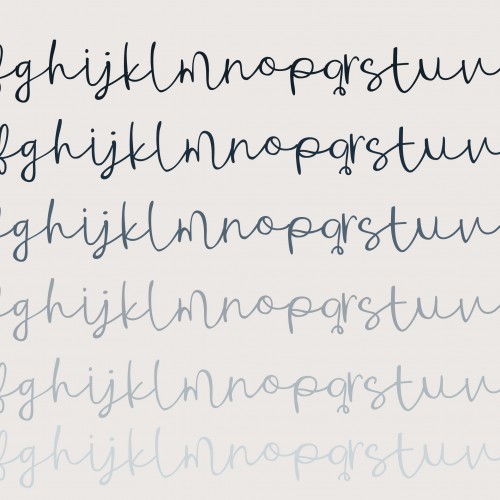 fghijklmnopqrstuv
fghijklmnopqrstuv
fghijklmnopqrstuv
fghijklmnopqrstuv
fghijklmnopqrstuv
fghijklmnopqrstuv